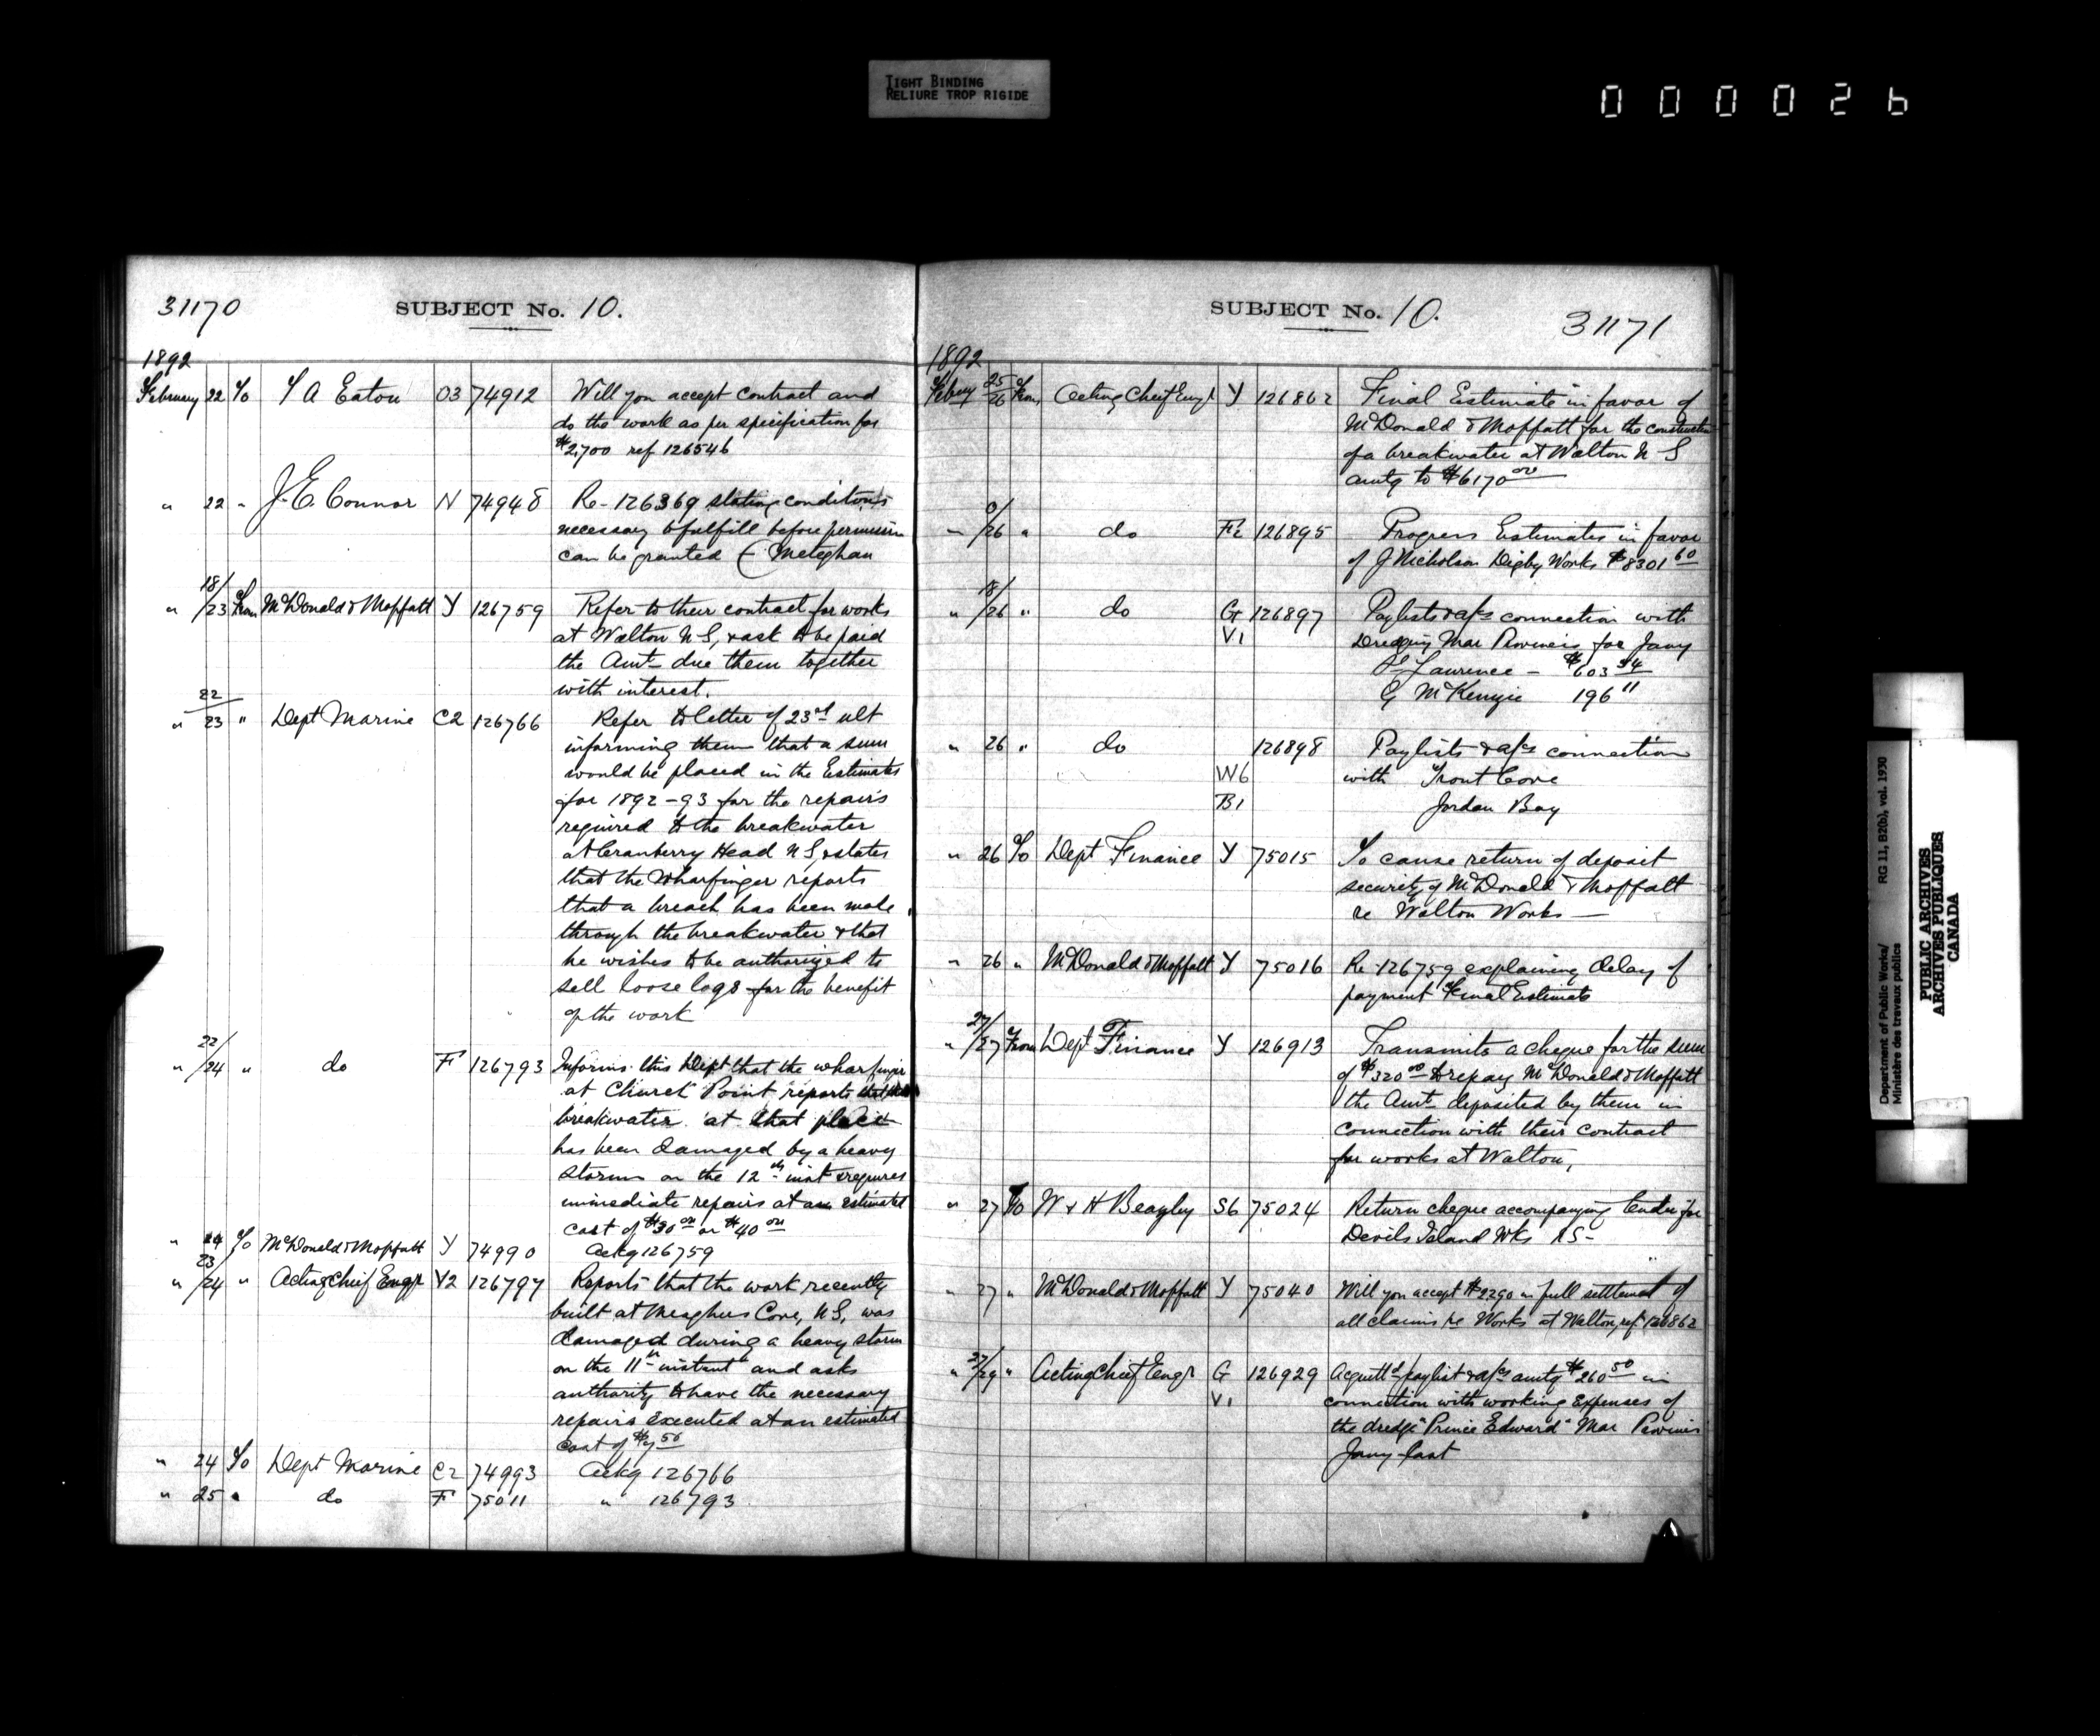 TIGHT BINDING
RELIURE TROP RIGIDE
000026
31170 SUBJECT No. 10.
1892
February 22 To T A Eaton O3 74912 Will you accept contract and
do the work as per specification for
$2,700 ref 126546
" 22 " J. E. Connor N 74948 Re- 126369 stating conditions
necessary to fulfill before permission
can be granted ( Meteghan
" 18/23 From McDonald & Moffatt Y 126759 Refer to their contract for works
at Walton N S, & ask to be paid
the Amt due them together
with interest.
" 22/23 " Dept Marine C2 126766 Refer to letter of 23rd ult
informing them that a sum
would be placed in the Estimates
for 1892-93 for the repairs
required to the breakwater
at Cranberry Head N S, & states
that the Wharfinger reports
that a breach has been made
through the breakwater & that
he wishes to be authorized to
sell loose logs for the benefit
of the work
" 22/24 " do F 126793 Informs this Dept that the wharfinger
at Church Point reports that the
breakwater at that place
has been damaged by a heavy
storm on the 12th inst & requires
immediate repairs at an estimated
cost of $30 00 or $40 00
" 24 To McDonald & Moffatt Y 74990 Ackg 126759
" 23/24 " Acting Chief Engr Y2 126797 Reports that the work recently
built at Meaghers Cove, N S, was
damaged during a heavy storm
on the 11th instant and asks
authority to have the necessary
repairs executed at an estimated
cost of
" 24 To Dept Marine C2 74993 Ackg 126766
" 25 " do F 75011 " 126793
SUBJECT No. 10. 31171
1892
Febuy 25/26 From Acting Chief Engr Y 126862 Final Estimate in favor of
McDonald & Moffatt for the construction
of a breakwater at Walton N S
amtg to $6170 00
" /26 " do F2 126895 Progress Estimates in favor
of J Nicholson Digby Works $8301 60
" 18/26 " do G 126897 Paylists & a/cs connection with
V1 Dredging Mar Provinces for Jany
St Lawrence - $603 54
G McKenzie 196 11
" 26 " do 126898 Paylists & a/cs connection
W6 with Trout Cove
B1 Jordan Bay
" 26 To Dept Finance Y 75015 To cause return of deposit
security of McDonald & Moffatt
re Walton Works —
" 26 " McDonald & Moffatt Y 75016 Re- 126759 explaining delay of
payment Final Estimate
" 27/27 From Dept Finance Y 126913 Transmits a cheque for the sum
of $320 00 to repay McDonald & Moffatt
the Amt deposited by them in
connection with their contract
for works at Walton,
" 27 To W & H Beazley S6 75024 Return cheque accompanying tender for
Devils Island Wks NS-
" 27 " McDonald & Moffatt Y 75040 Will you accept $2290 in full settlement of
all claims re Works at Walton, ref 126862
" 27/29 " Acting Chief Engr G 126929 Acquittd paylist & a/cs amtg $260 50 in
V1 connection with working Expenses of
the dredge "Prince Edward" Mar Provinces
Jany last
Department of Public Works/
Ministère des travaux publics
RG 11, B2(b), vol. 1930
PUBLIC ARCHIVES
ARCHIVES PUBLIQUES
CANADA